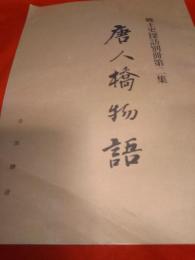 郷土史探訪別冊第二集
唐人橋物語